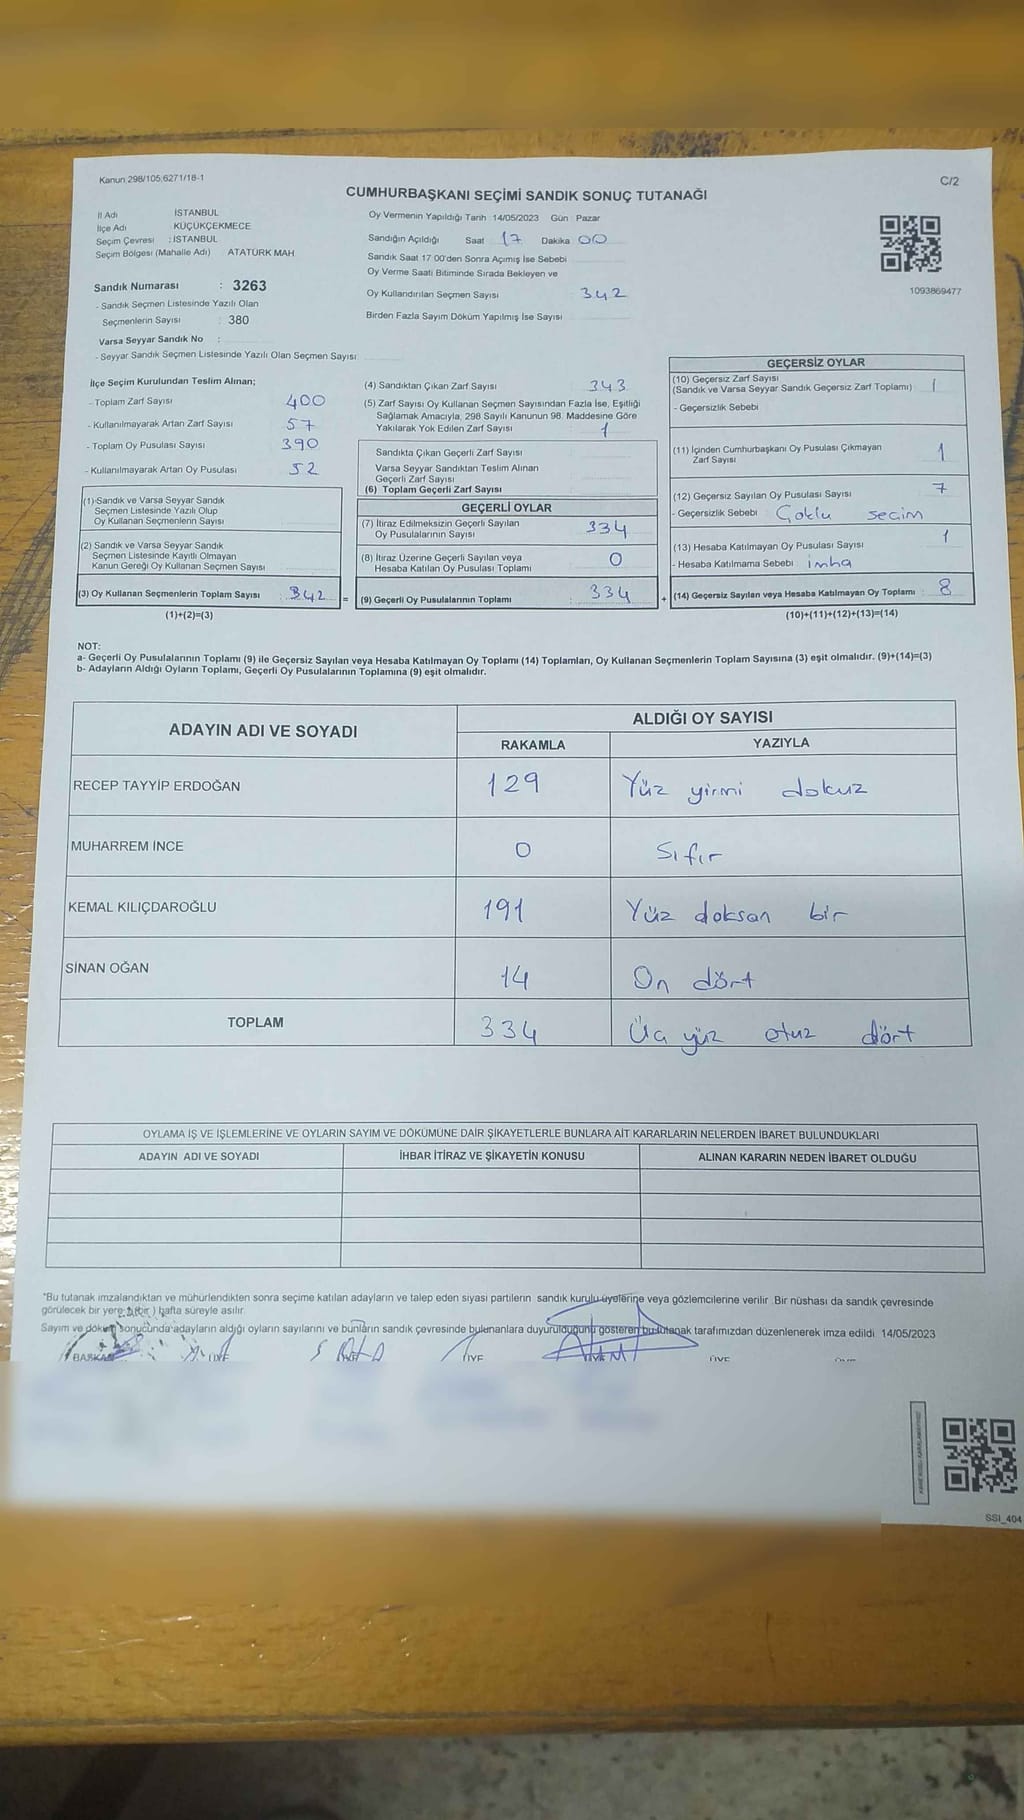 Kanun 298/105;6271/18-1
C/2
CUMHURBAŞKANI SEÇİMİ SANDIK SONUÇ TUTANAĞI
İl Adı İSTANBUL
İlçe Adı KÜÇÜKÇEKMECE
Seçim Çevresi : İSTANBUL
Seçim Bölgesi (Mahalle Adı) ATATÜRK MAH
Sandık Numarası : 3263
- Sandık Seçmen Listesinde Yazılı Olan
Seçmenlerin Sayısı : 380
Varsa Seyyar Sandık No :
- Seyyar Sandık Seçmen Listesinde Yazılı Olan Seçmen Sayısı
Oy Vermenin Yapıldığı Tarih 14/05/2023 Gün Pazar
Sandığın Açıldığı Saat 17 Dakika 00
Sandık Saat 17 00'den Sonra Açımış İse Sebebi
Oy Verme Saati Bitiminde Sırada Bekleyen ve
Oy Kullandırılan Seçmen Sayısı 342
Birden Fazla Sayım Döküm Yapılmış İse Sayısı
1093869477
İlçe Seçim Kurulundan Teslim Alınan;
- Toplam Zarf Sayısı 400
- Kullanılmayarak Artan Zarf Sayısı 57
- Toplam Oy Pusulası Sayısı 390
- Kullanılmayarak Artan Oy Pusulası 52
(1) Sandık ve Varsa Seyyar Sandık
Seçmen Listesinde Yazılı Olup
Oy Kullanan Seçmenlerin Sayısı
(2) Sandık ve Varsa Seyyar Sandık
Seçmen Listesinde Kayıtlı Olmayan
Kanun Gereği Oy Kullanan Seçmen Sayısı
(3) Oy Kullanan Seçmenlerin Toplam Sayısı 342 =
(1)+(2)=(3)
(4) Sandıktan Çıkan Zarf Sayısı 343
(5) Zarf Sayısı Oy Kullanan Seçmen Sayısından Fazla İse, Eşitliği
Sağlamak Amacıyla, 298 Sayılı Kanunun 98. Maddesine Göre
Yakılarak Yok Edilen Zarf Sayısı 1
Sandıkta Çıkan Geçerli Zarf Sayısı
Varsa Seyyar Sandıktan Teslim Alınan
Geçerli Zarf Sayısı
(6) Toplam Geçerli Zarf Sayısı
GEÇERLİ OYLAR
(7) İtiraz Edilmeksizin Geçerli Sayılan
Oy Pusulalarının Sayısı 334
(8) İtiraz Üzerine Geçerli Sayılan veya
Hesaba Katılan Oy Pusulası Toplamı 0
(9) Geçerli Oy Pusulalarının Toplamı 334 +
GEÇERSİZ OYLAR
(10) Geçersiz Zarf Sayısı
(Sandık ve Varsa Seyyar Sandık Geçersiz Zarf Toplamı) 1
- Geçersizlik Sebebi
(11) İçinden Cumhurbaşkanı Oy Pusulası Çıkmayan
Zarf Sayısı 1
(12) Geçersiz Sayılan Oy Pusulası Sayısı 7
- Geçersizlik Sebebi Çoklu seçim
(13) Hesaba Katılmayan Oy Pusulası Sayısı 1
- Hesaba Katılmama Sebebi imha
(14) Geçersiz Sayılan veya Hesaba Katılmayan Oy Toplamı 8
(10)+(11)+(12)+(13)=(14)
NOT:
a- Geçerli Oy Pusulalarının Toplamı (9) ile Geçersiz Sayılan veya Hesaba Katılmayan Oy Toplamı (14) Toplamları, Oy Kullanan Seçmenlerin Toplam Sayısına (3) eşit olmalıdır. (9)+(14)=(3)
b- Adayların Aldığı Oyların Toplamı, Geçerli Oy Pusulalarının Toplamına (9) eşit olmalıdır.
ADAYIN ADI VE SOYADI ALDIĞI OY SAYISI
RAKAMLA YAZIYLA
RECEP TAYYİP ERDOĞAN 129 Yüz yirmi dokuz
MUHARREM İNCE 0 Sıfır
KEMAL KILIÇDAROĞLU 191 Yüz doksan bir
SİNAN OĞAN 14 On dört
TOPLAM 334 Üç yüz otuz dört
OYLAMA İŞ VE İŞLEMLERİNE VE OYLARIN SAYIM VE DÖKÜMÜNE DAİR ŞİKAYETLERLE BUNLARA AİT KARARLARIN NELERDEN İBARET BULUNDUKLARI
ADAYIN ADI VE SOYADI İHBAR İTİRAZ VE ŞİKAYETİN KONUSU ALINAN KARARIN NEDEN İBARET OLDUĞU
*Bu tutanak imzalandıktan ve mühürlendikten sonra seçime katılan adayların ve talep eden siyasi partilerin sandık kurulu üyelerine veya gözlemcilerine verilir Bir nüshası da sandık çevresinde
görülecek bir yere 1 (bir) hafta süreyle asılır.
Sayım ve döküm sonucunda adayların aldığı oyların sayılarını ve bunların sandık çevresinde bulunanlara duyurulduğunu gösteren bu tutanak tarafımızdan düzenlenerek imza edildi 14/05/2023
BAŞKAN ÜYE ÜYE ÜYE ÜYE
SSI_404